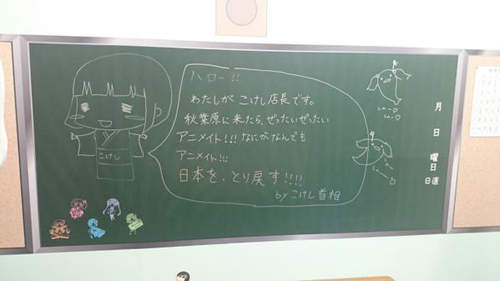 ハロー!!
わたしが、こけし店長です。
秋葉原に来たら、ぜったいぜったい
アニメイト!!! なにがなんでも
アニメイト!!!
日本を、とり戻す!!!!
by こけし首相
こけし
月
日
曜日
日直